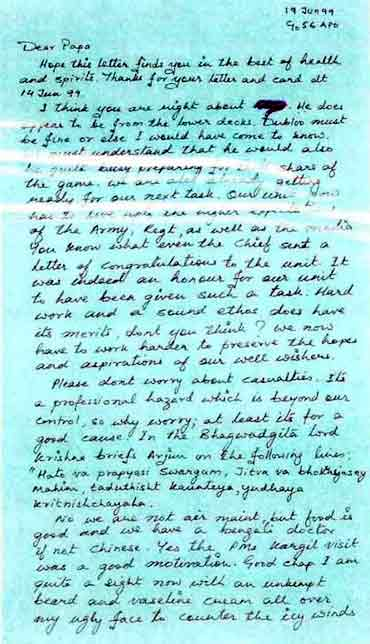 19 Jun 99
C/o 56 APO
Dear Papa
Hope this letter finds you in the best of health
and spirits. Thanks for your letter and card dt
14 Jun 99.
I think you are right about He does
appear to be from the lower decks. Bubloo must
be fine or else I would have come to know.
must understand that he would also
be quite busy preparing for share of
the game. we are also getting
ready for our next task. Our unit now
has to live upto the higher
of the Army, Regt, as well as the media
You know what even the Chief sent a
letter of congratulations to the unit. It
was indeed an honour for our unit
to have been given such a task. Hard
work and a sound ethos does have
its merits, dont you think? we now
have to work harder to preserve the hopes
and aspirations of our well wishers.
Please dont worry about casualties. Its
a professional hazard which is beyond our
control, so why worry; at least its for a
good cause. In the Bhagwadgita Lord
Krishna briefs Arjun on the following lines:
"Hato va prapyasi Swargam, Jitva va
Mahim, taduthisht Kaunteya, yudhaya
kritnishchayaha.
No we are not air maint, but food is
good and we have a bengali doctor
if not Chinese. Yes the PMs Kargil visit
was a good motivation. Good chap I am
quite a sight now with an unkempt
beard and vaseline cream all over
my ugly face to counter the icy winds